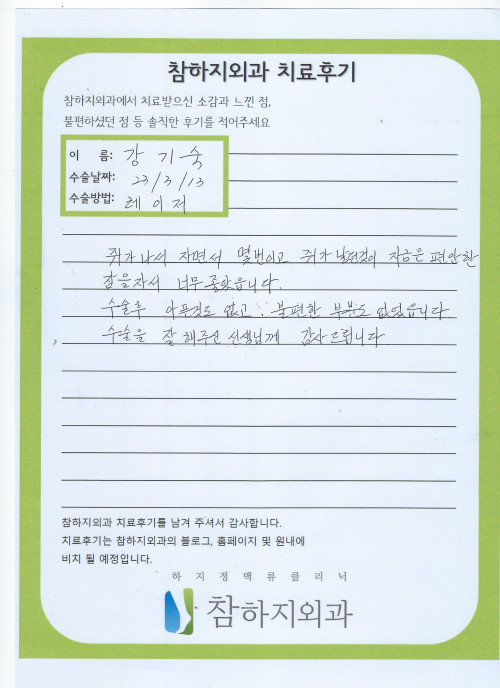 참하지외과 치료후기
참하지외과에서 치료받으신 소감과 느낀 점,
불편하셨던 점 등 솔직한 후기를 적어주세요
이 름: 강 기 숙
수술날짜: 23/3/13
수술방법: 레이저
쥐가 나서 자면서 몇번이고 쥐가 났던것이 지금은 편안한
잠을자서 너무 좋았읍니다.
수술후 아픈것도 없고 불편한 부분도 없었읍니다
수술을 잘 해주신 선생님께 감사드립니다
참하지외과 치료후기를 남겨 주셔서 감사합니다.
치료후기는 참하지외과의 블로그, 홈페이지 및 원내에
비치 될 예정입니다.
하지정맥류클리닉
참하지외과